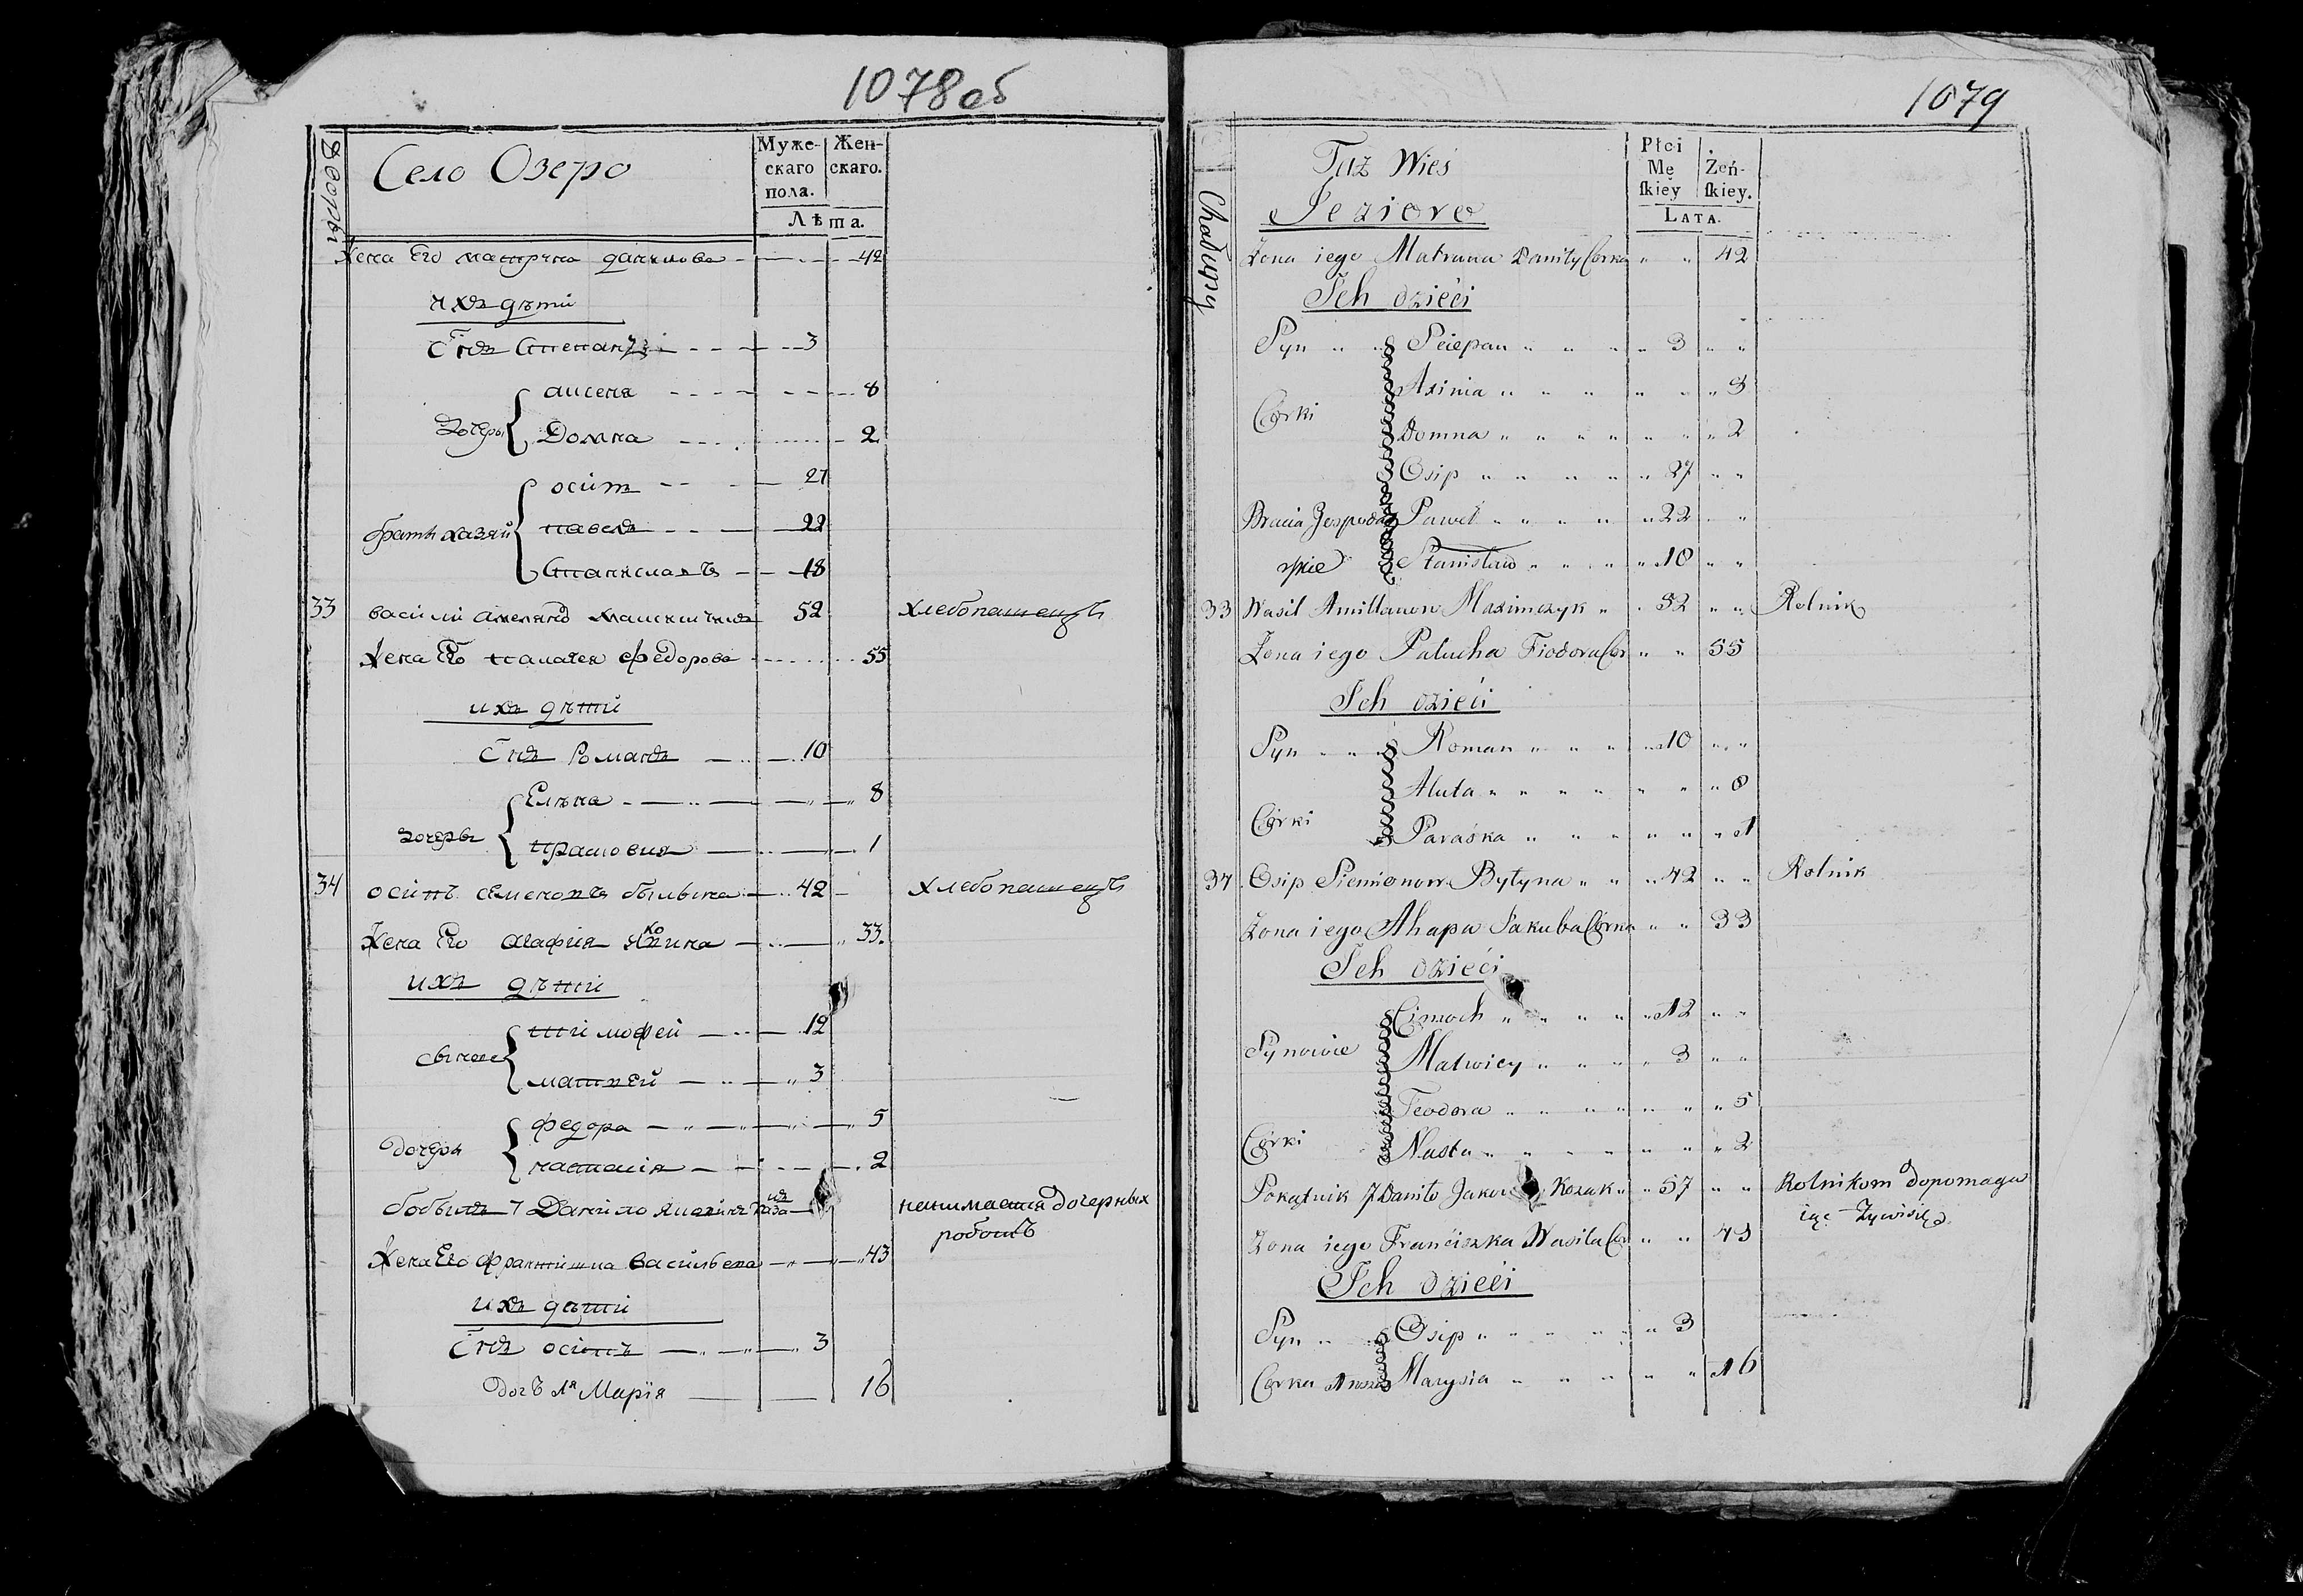 1078об
Дворы
Село Озеро
Муже-
скаго
пола.
Жен-
скаго.
Лѣта.
Жена Его матрина данилова 42
ихъ дѣти
Снъ Степанъ 3
Дочеры
аксеня 8
Домна 2
братья хазяй
осипъ 27
павелъ 22
Станиславъ 18
33 василий амеляно 52 хлебопашецъ
Жена Его палагея федорова 55
ихъ дѣти
Снъ Романъ 10
дочеры
Елѣна 8
прасковия 1
34 осипъ Семеновъ былына 42 хлебопашецъ
Жена Его агафия 33.
ихъ дѣти
сынове
тимофей 12
матвей 3
Дочеры
федора 5
настасия 2
бобыль 7 Данило нанимается дочерныхъ
роботъ
Жена Его францишка васильева 43
ихъ дѣти
Снъ осипъ 3
Дочь Марїя 16
1079
Chałupy
Taż Wieś
Jezioro
Płci
Mę
ſkiey
Żeń-
ſkiey.
Lata.
Zona iego Matruna Daniły Corka " " 42
Ich dzieći
Syn " " Sciepan " " " " 3 " "
Corki
Axinia " " " " " " 8
Domna " " " " " " " 2
Bracia Gospodar
skie
Osip " " " " " 27 " "
Paweł " " " " " 22 " "
Stanisław " " " " " 18 " "
33 Wasil Amillanow Maximczyk " " 52 " " Rolnik
Zona iego Palucha Fiodora Cor " " 55
Ich dzieći
Syn " " " Roman " " " " 10 " "
Córki
Aluta " " " " " " " 8
Paraśka " " " " " " 1
34 Osip Siemionow Bytyna " " " 42 " " Rolnik
Zona iego Ahapa Jakuba Córka " " 33
Ich dzieći
Synowie
Cimoch " " " " " 12 " "
Matwiey " " " " 3 " "
Córki
Teodora " " " " " " " 5
Nasta " " " " " " " 2
Pokątnik 7 Daniło Jakow Kozak " " 57 " " Rolnikom dopomaga
iąc Żywi się
Zona iego Franćiszka Wasila Cor " " 43
Ich dzieći
Syn " " Osip " " " " " " 3
Corka Marysia " " " " " " 16